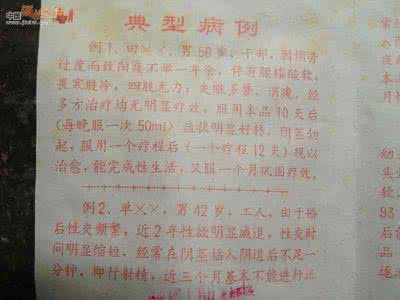 典型病例
例1、田××，男56岁，干部，因烦劳
过度而致阳痿不举一年余，伴有腰膝酸软，
畏寒肢冷，四肢无力，失眠多梦，消渡，经
多方治疗均无明显疗效，服用本品10天后
（每晚服一次50ml）症状明显好转，阴茎勃
起，服用一个疗程后（一个疗程12天）现以
治愈，能完成性生活，又服一个月巩固疗效。
例2、单××，男42岁，工人，由于婚
后性交频繁，近2年性欲明显减退，性交时
间明显缩短，经常在阴茎插入阴道后不足一
分钟，即行射精，近三个月基本不能进行正
93